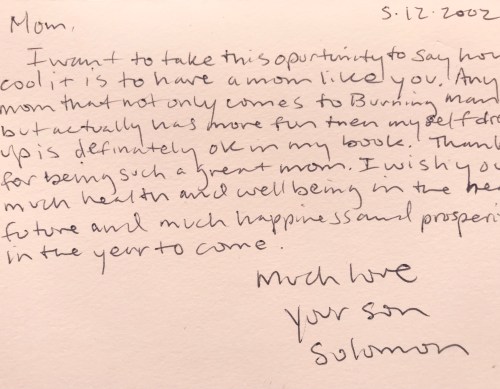 5.12.2002
Mom,
I want to take this oportunity to say how
cool it is to have a mom like you. Any
mom that not only comes to Burning man
but actually has more fun then myself dr
up is definately ok in my book. Thank
for being such a great mom. I wish you
much health and well being in the nea
future and much happiness and prosperi
in the year to come.
Much love
Your son
Solomon